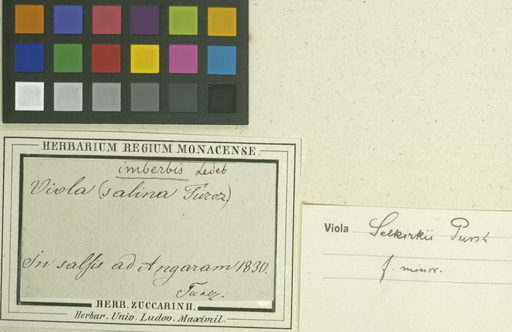 HERBARIUM REGIUM MONACENSE.
imberbis Ledeb
Viola (salina Turcz)
In salsis ad Angaram 1830.
Turcz.
HERB. ZUCCARINII.
Herbar. Univ. Ludov. Maximil.
Viola Selkirkii Pursh
f. minor.